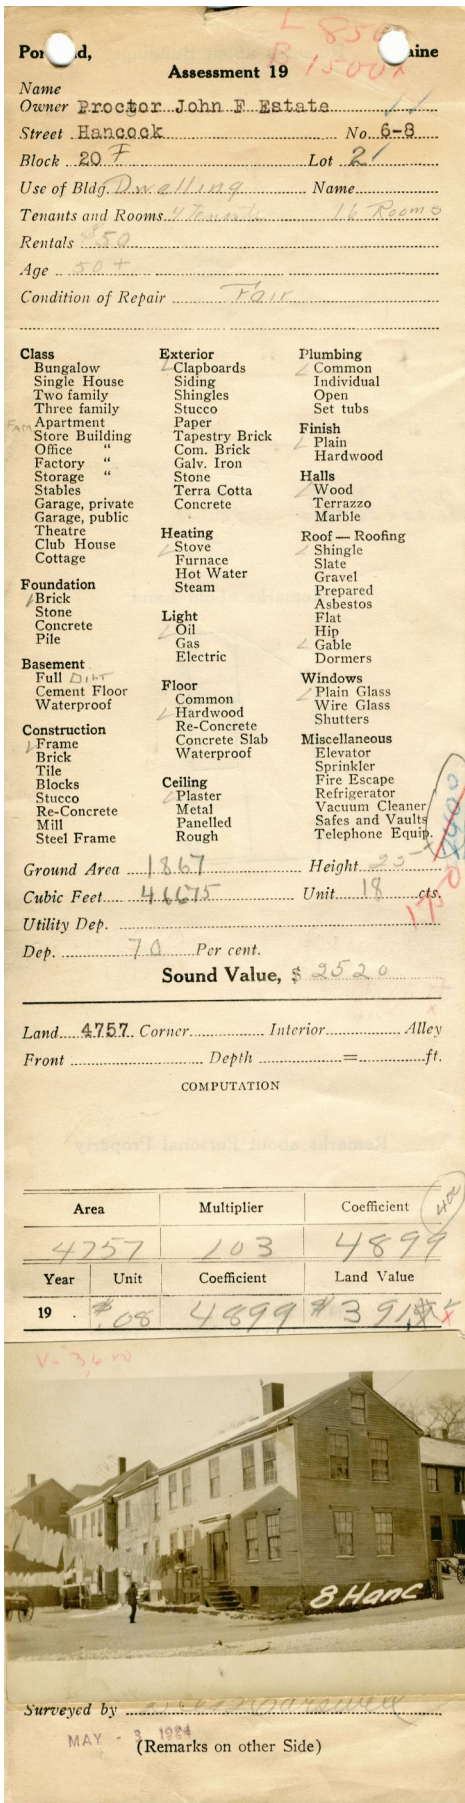 L 850
B 1500
Po d, aine
Assessment 19
Name
Owner Proctor John F Estate
Street Hancock No. 6-8
Block 20 F Lot 2
Use of Bldg. Dwelling Name
Tenants and Rooms 4 Tenants 16 Rooms
Rentals $50
Age 50 +
Condition of Repair Fair
Class
Bungalow
Single House
Two family
Three family
FAM Apartment
Store Building
Office "
Factory "
Storage "
Stables
Garage, private
Garage, public
Theatre
Club House
Cottage
Foundation
Brick
Stone
Concrete
Pile
Basement
Full Dirt
Cement Floor
Waterproof
Construction
Frame
Brick
Tile
Blocks
Stucco
Re-Concrete
Mill
Steel Frame
Exterior
Clapboards
Siding
Shingles
Stucco
Paper
Tapestry Brick
Com. Brick
Galv. Iron
Stone
Terra Cotta
Concrete
Heating
Stove
Furnace
Hot Water
Steam
Light
Oil
Gas
Electric
Floor
Common
Hardwood
Re-Concrete
Concrete Slab
Waterproof
Ceiling
Plaster
Metal
Panelled
Rough
Plumbing
Common
Individual
Open
Set tubs
Finish
Plain
Hardwood
Halls
Wood
Terrazzo
Marble
Roof — Roofing
Shingle
Slate
Gravel
Prepared
Asbestos
Flat
Hip
Gable
Dormers
Windows
Plain Glass
Wire Glass
Shutters
Miscellaneous
Elevator
Sprinkler
Fire Escape
Refrigerator
Vacuum Cleaner
Safes and Vaults
Telephone Equip.
Ground Area 1867 Height 25
Cubic Feet 46675 Unit 18 cts.
Utility Dep.
Dep. 70 Per cent.
Sound Value, $ 2520
Land 4757 Corner Interior Alley
Front Depth = ft.
COMPUTATION
400
Area Multiplier Coefficient
4757 103 4899
Year Unit Coefficient Land Value
19 . $.08 4899 $391
8 Hanc
Surveyed by
MAY - 3 1924
(Remarks on other Side)